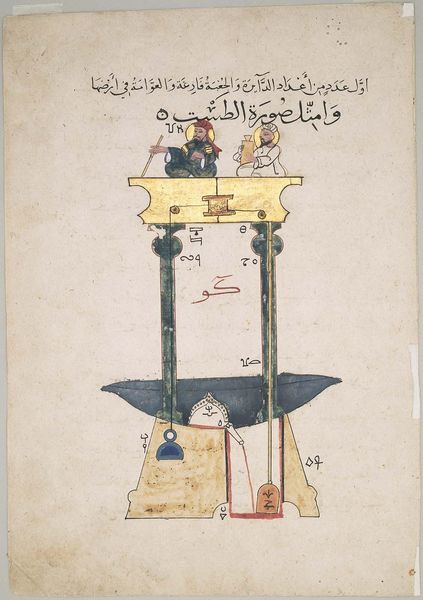 اوّل عَدَدٍ من أعْدادِ الدآيرَة والجُعْبَة فارغة والعوّامَة في أرْضها
وَامثّل صُورَة الطَسْت
كو